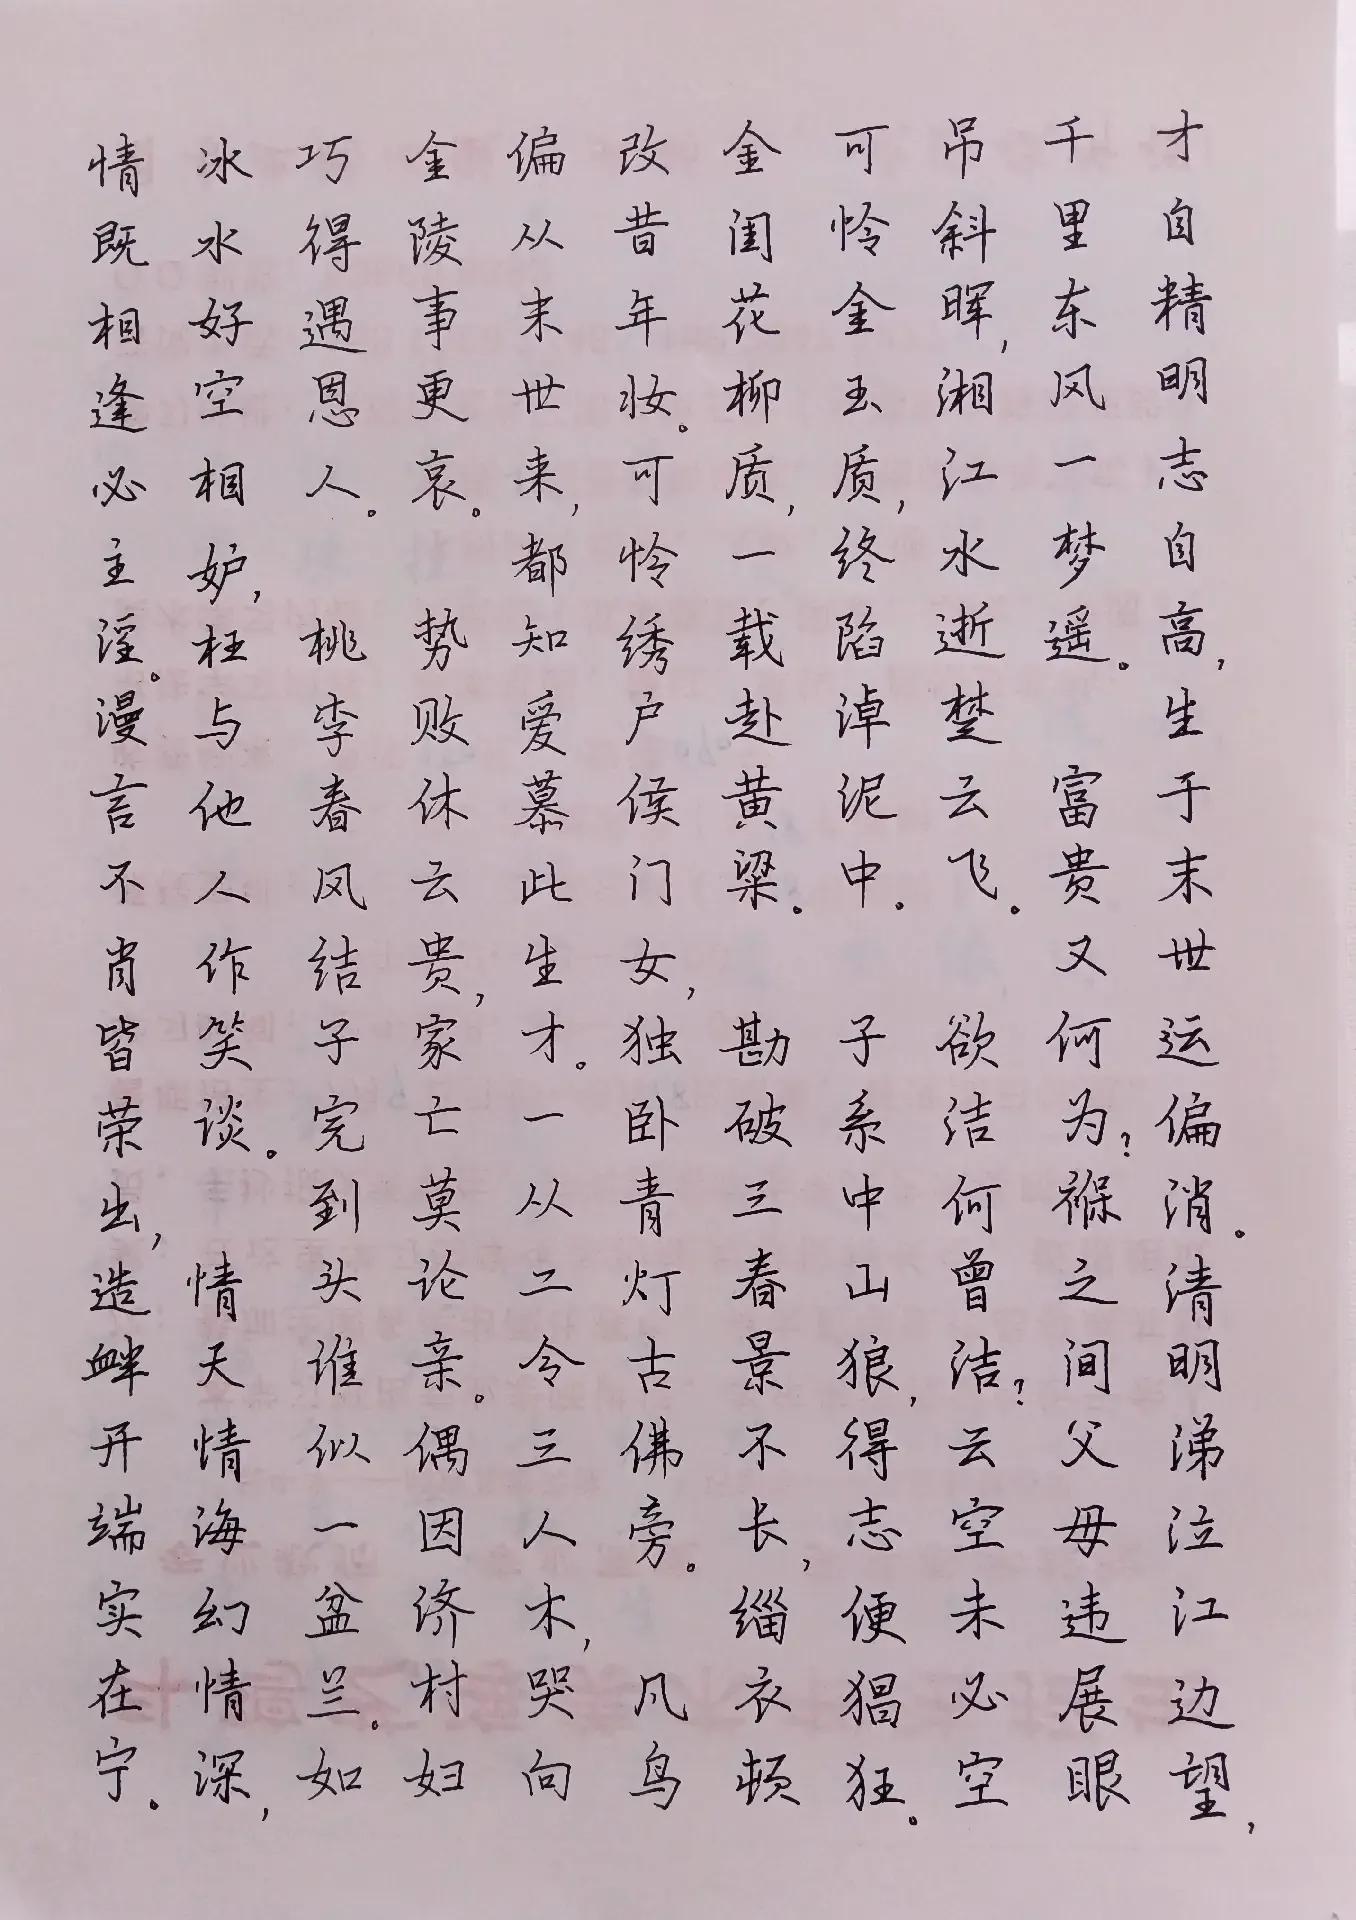 才自精明志自高,生于末世运偏消。清明涕泣江边望,
千里东风一梦遥。 富贵又何为?褓之间父母违展眼
吊斜晖,湘江水逝楚云飞。 欲洁何曾洁?云空未必空
可怜金玉质,终陷淖泥中。 子系中山狼,得志便猖狂。
金闺花柳质,一载赴黄粱。 勘破三春景不长,缁衣顿
改昔年妆。可怜绣户侯门女,独卧青灯古佛旁。 凡鸟
偏从末世来,都知爱慕此生才。一从二令三人木,哭向
金陵事更哀。 势败休云贵,家亡莫论亲。偶因济村妇
巧得遇恩人。 桃李春风结子完到头谁似一盆兰。如
冰水好空相妒,枉与他人作笑谈。 情天情海幻情深,
情既相逢必主淫。漫言不肖皆荣出,造衅开端实在宁。